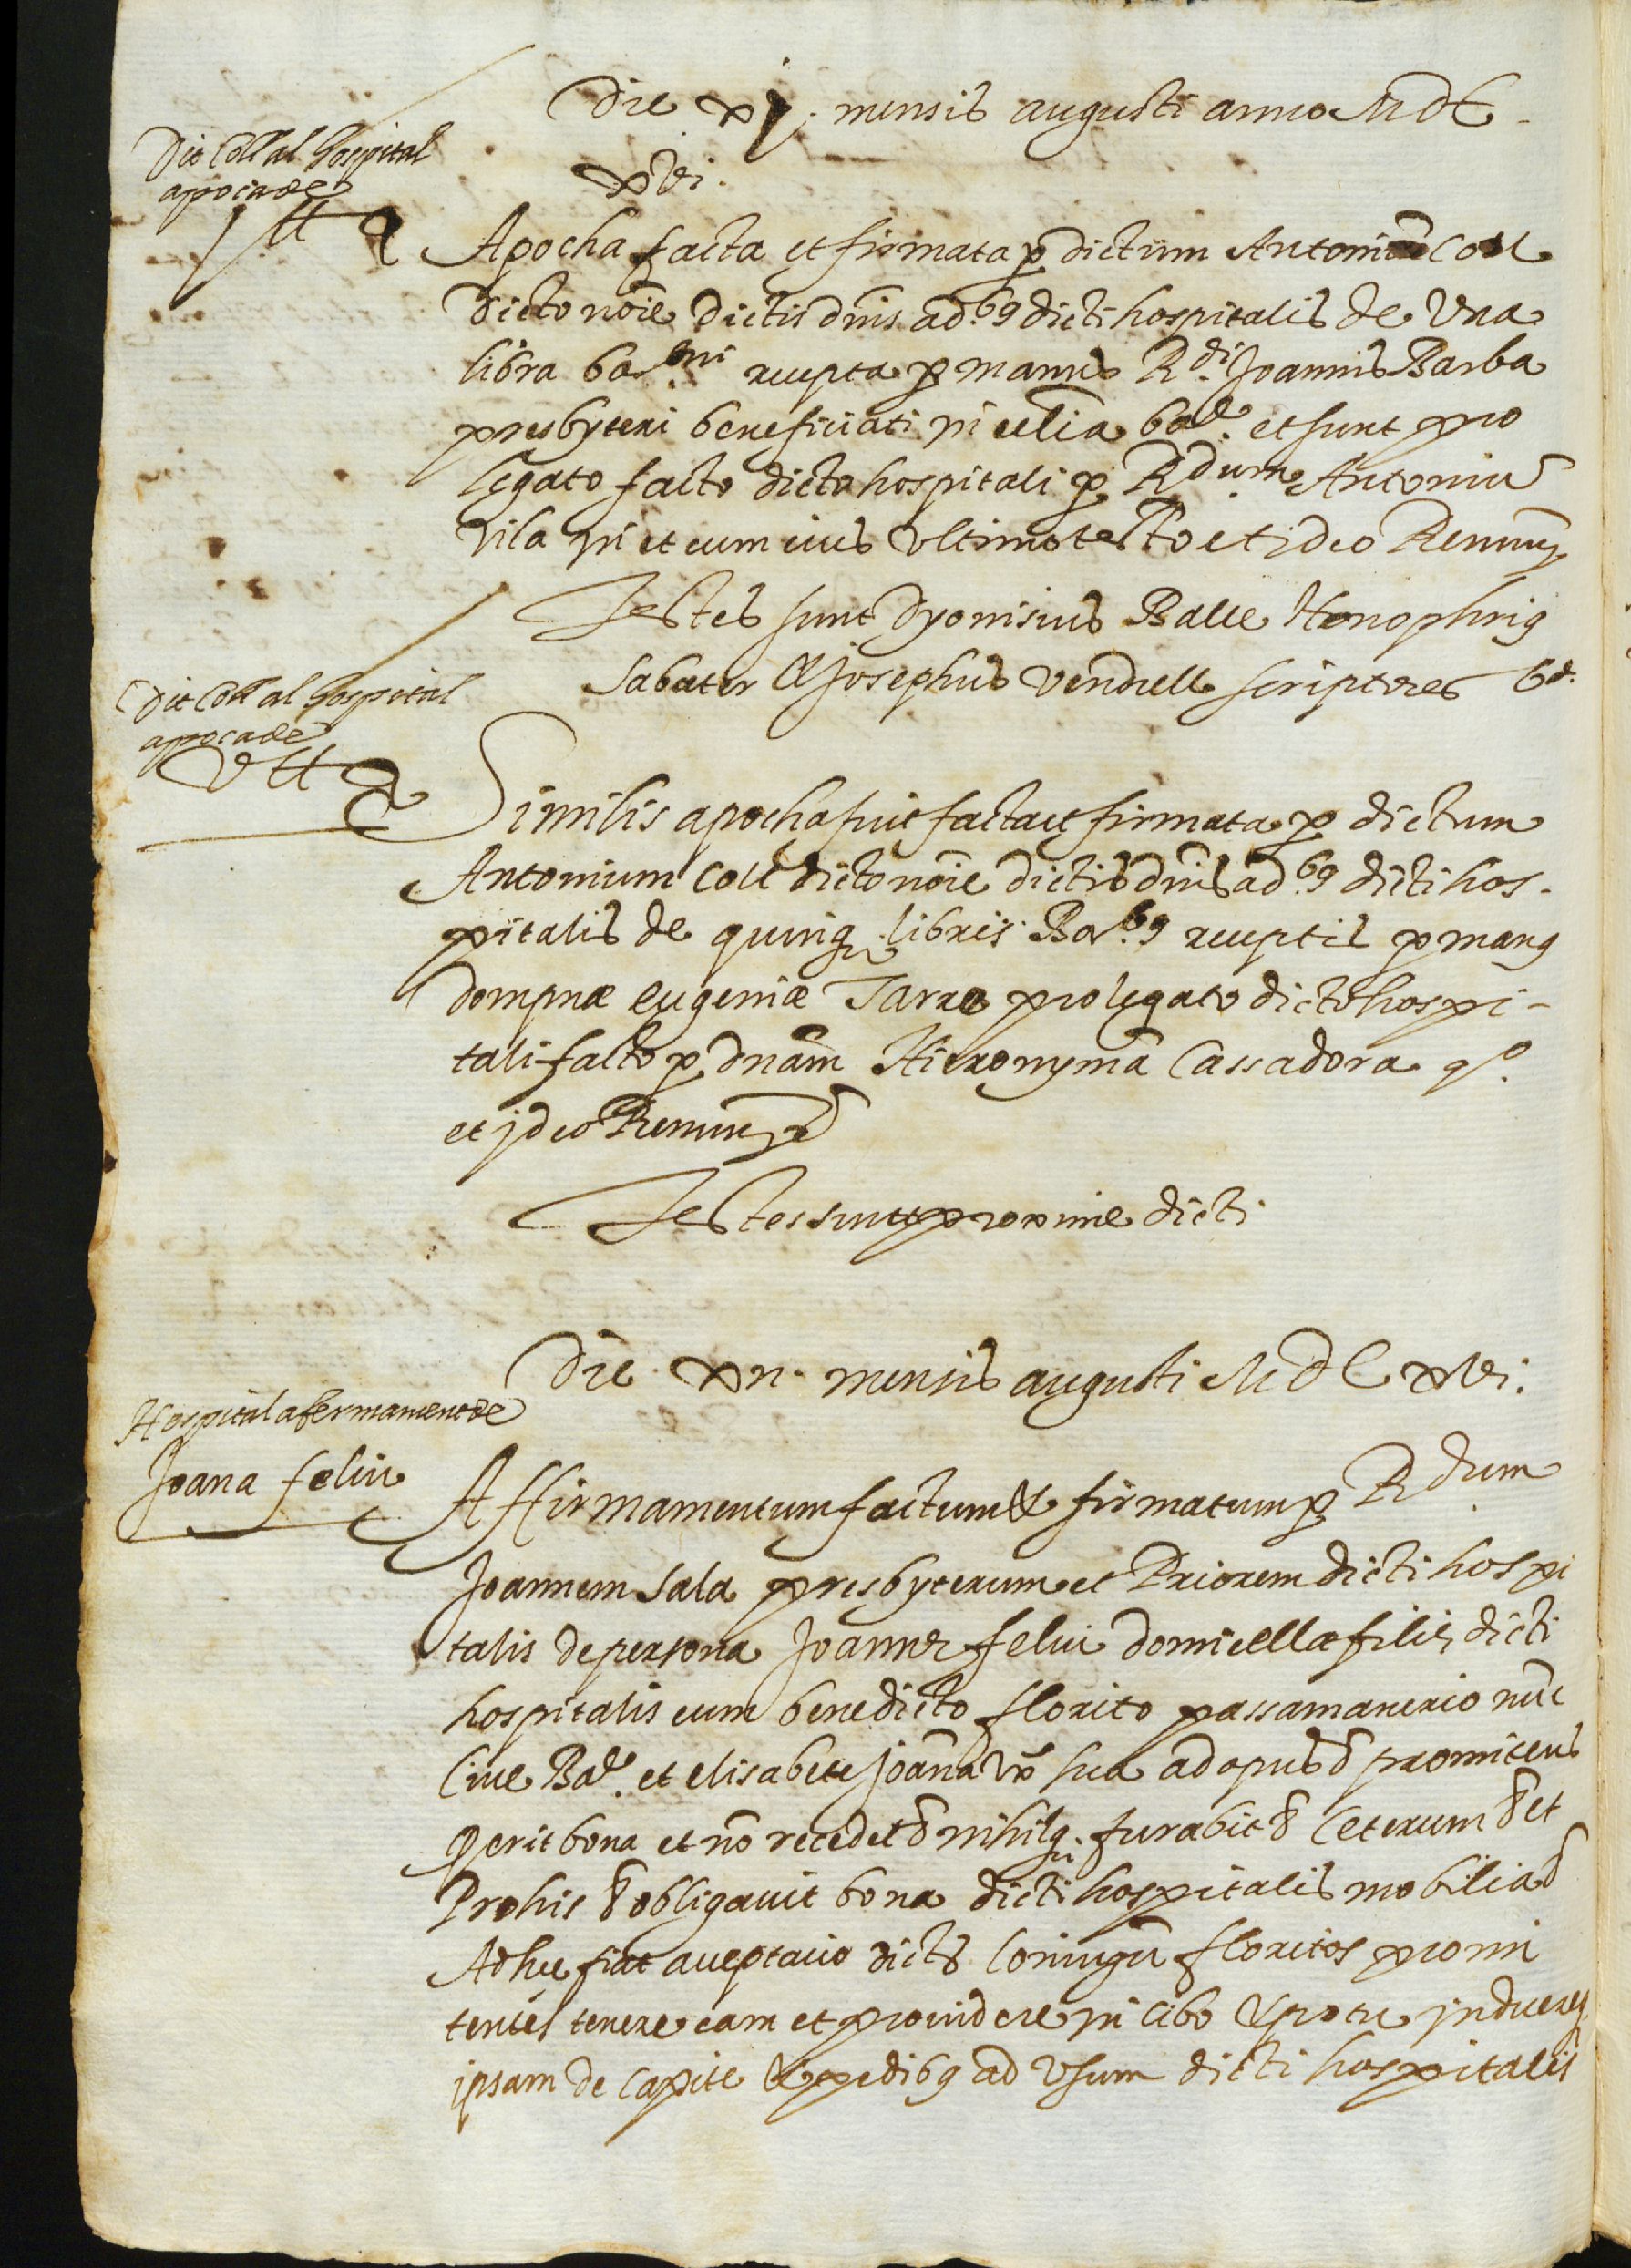 Die xj. mensis augusti anno MDC
xvi.
Dit Coll al hospital
apoca de
j ll
Apocha facta et firmata p dictum Antoniu Coll
dicto noīe dictis dnīs ad.b9 dicti hospitalis de Una
libra bar.ni recepta p manus R.di Joannis Barba
presbyteri beneficiati in ecclīa bar.e et sunt pro
legato facto dicto hospitali p R.dum Antoniū
vila in et cum eius Ultimo testto et ideo Renun
Testes sunt Dyonisius Balle Honophrig
Sabater & Josephus Vendrell scriptores b.e
Dit Coll al hospital
apoca de
v ll
Similis apocha fuit facta et firmata p dictum
Antonium Coll dicto noīe dictis dnīs ad.b9 dicti hos-
pitalis de quinq libris Bar.b9 receptis p mang
dompnæ eugeniæ Tarre pro legato dicto hospi-
tali facto p dnām Hieronymā Cassadora q.o
et jdeo Renun
Testes sunt proxime dicti
Die xii. mensis augusti MDC xvi.
Hospital afermament de
Joana feliu
Affirmamentum factum & firmatum p R.dum
Joannem Sala presbyterum et Priorem dicti hospi
talis de persona Joannæ feliu domicellæ filiæ dicti
hospitalis cum benedicto florito passamanerio nūc
Cive Bar.e et elisabete Joāna Vx sua ad opus promitens
Q erit bona et nō recedet nihilq. furabit Ceterum et
Pro his obligavit bona dicti hospitalis mobilia
Ad hec fiat acceptacio dictā Coniugū floritos promi
tentes tenere eam et providere in cibo & potu jnduereq
ipsam de Capite & pedib9 ad Usum dicti hospitalis